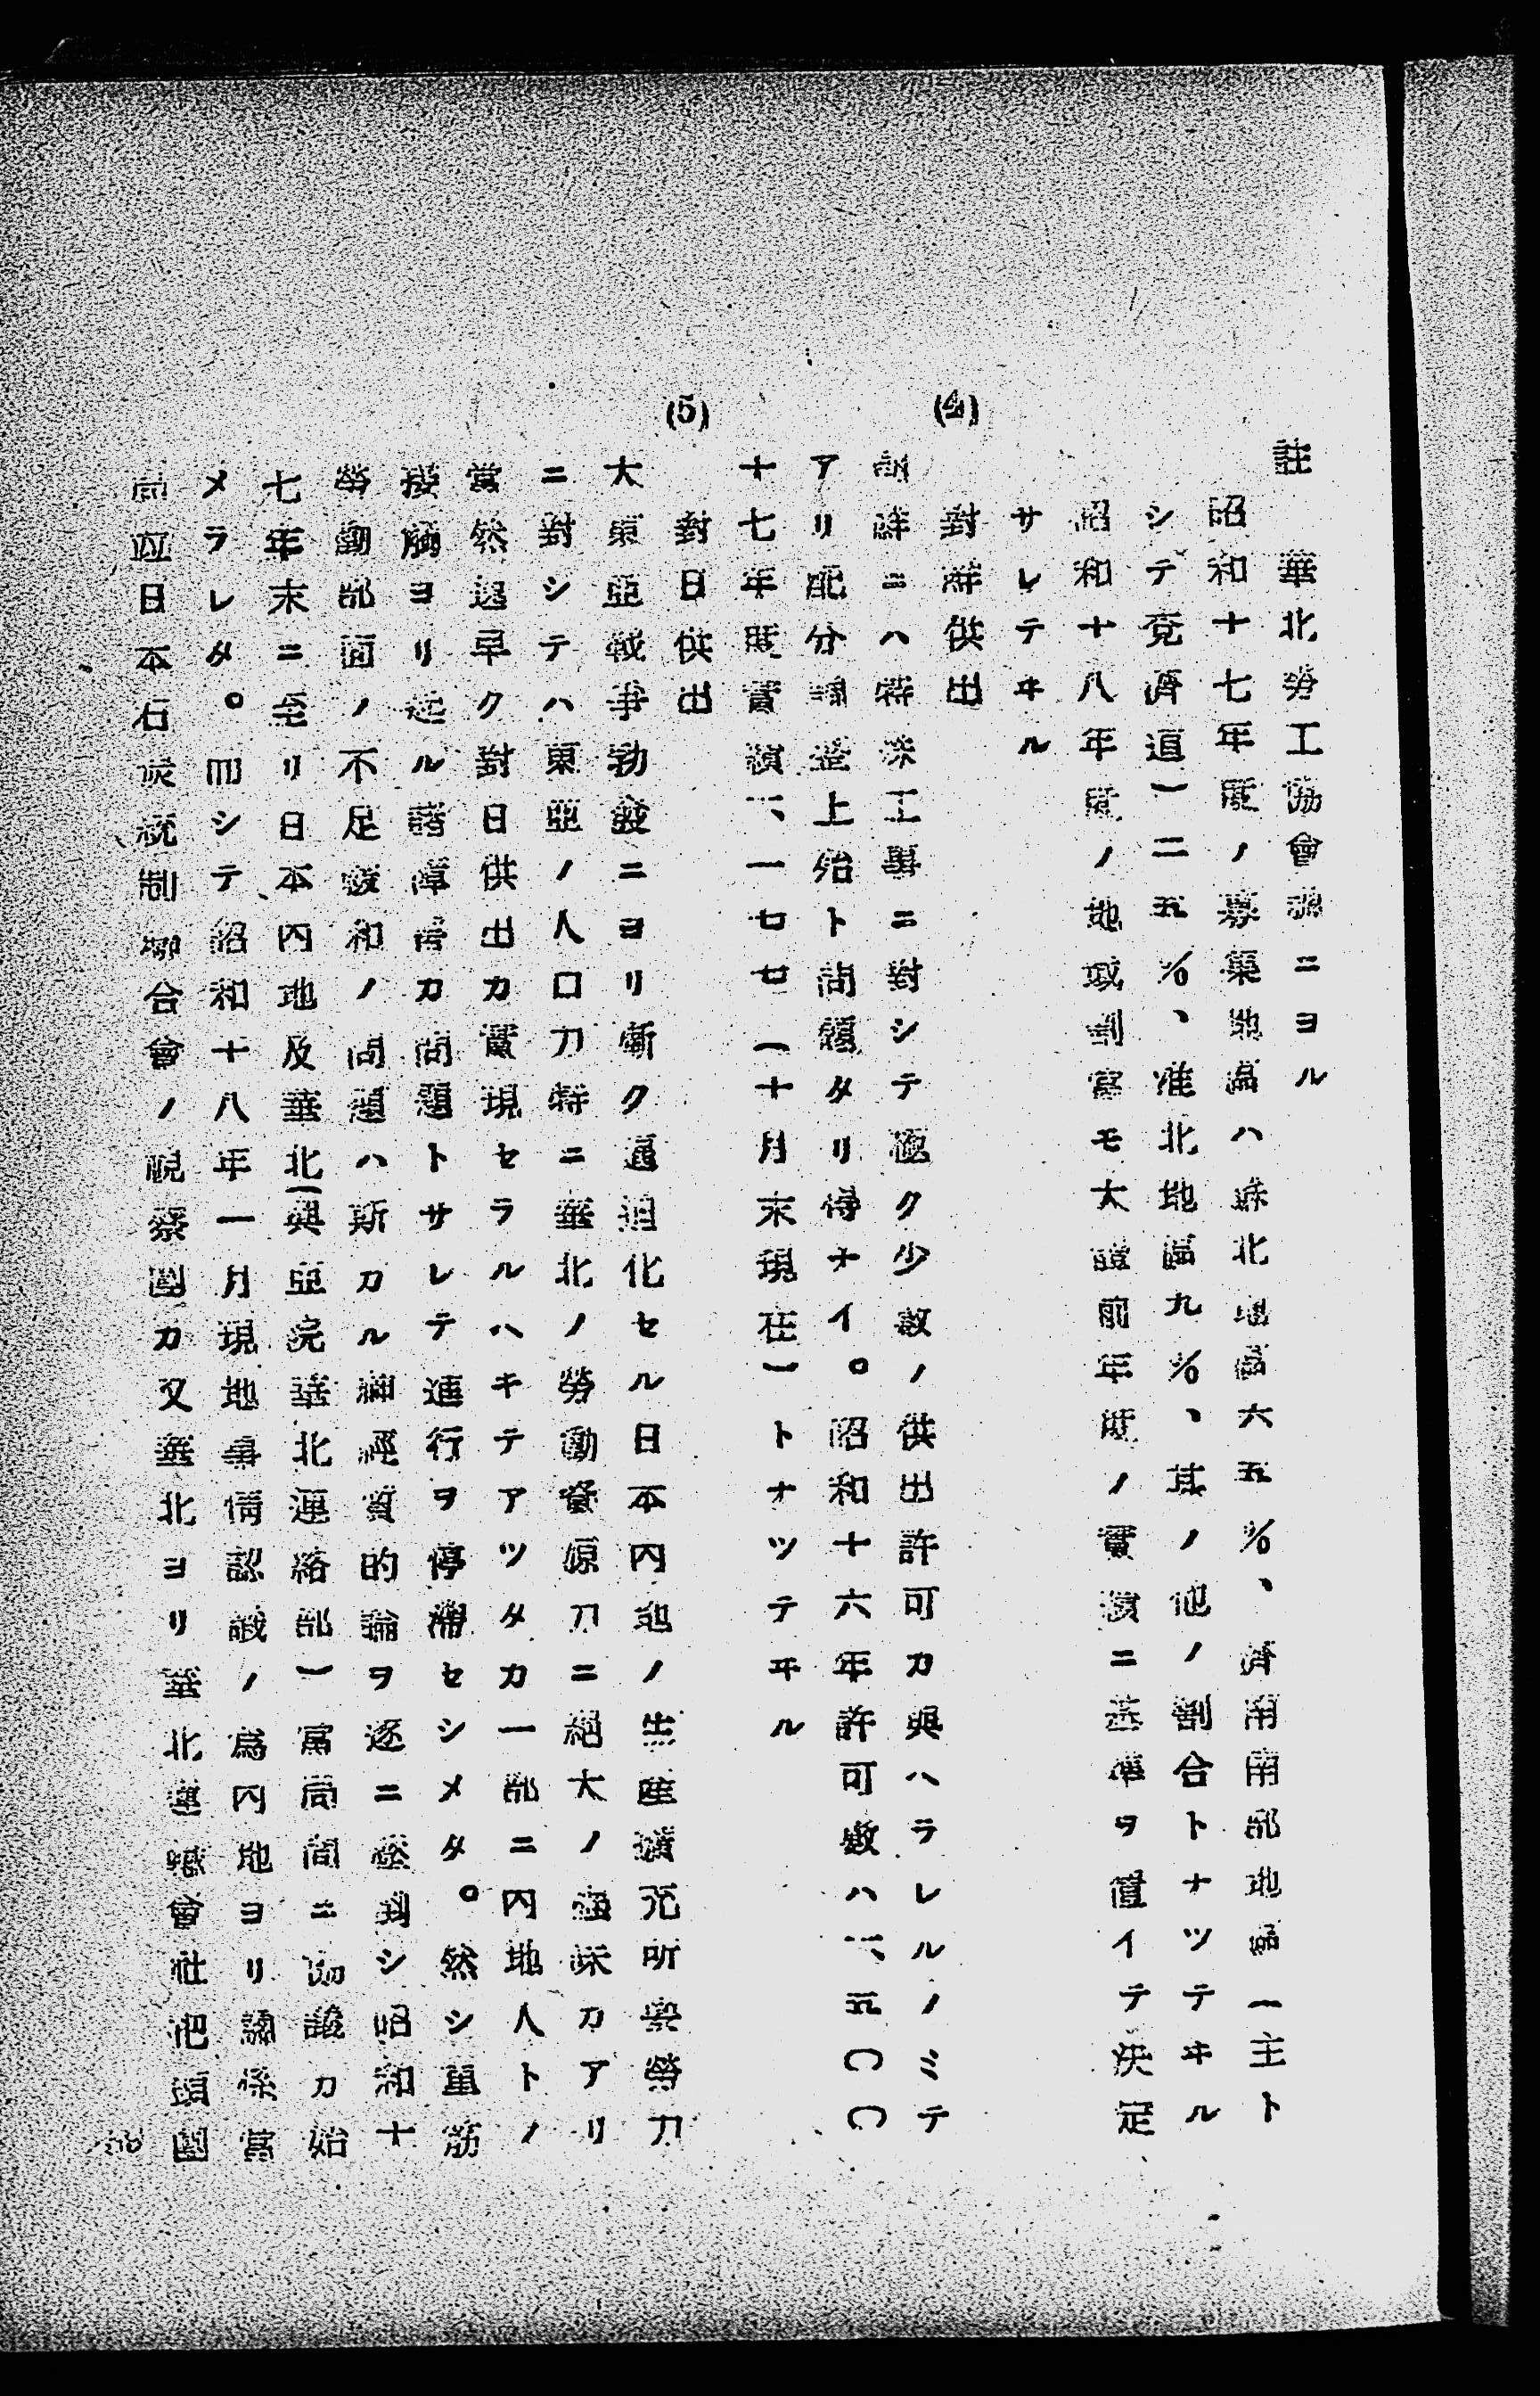 註　華北勞工協會調ニヨル
昭和十七年度ノ募集地區ハ蘇北地區六五％、濟南南部地區（主ト
シテ兗濟道）二五％、淮北地區九％、其ノ他ノ割合トナツテヰル
昭和十八年度ノ地域割當モ大體前年度ノ實績ニ基準ヲ置イテ決定
サレテヰル
(4)　對鮮供出
朝鮮ニハ特殊工事ニ對シテ極ク少數ノ供出許可カ與ハラレルノミテ
アリ配分調整上殆ト問題タリ得ナイ。昭和十六年許可數ハ一、五〇〇
十七年度實績一、一七七（十月末現在）トナツテヰル
(5)　對日供出
大東亞戰爭勃發ニヨリ漸ク逼迫化セル日本內地ノ生產擴充所要勞力
ニ對シテハ東亞ノ人口力特ニ華北ノ勞働資源力ニ絕大ノ魅 カアリ
當然遲早ク對日供出カ實現セラルヘキテアツタカ一部ニ內地人トノ
接觸ヨリ起ル諸障害カ問題トサレテ進行ヲ停滯セシメタ。然シ重筋
勞働部面ノ不足緩和ノ問題ハ斯カル神經質的論ヲ逐ニ 到シ昭和十
七年末ニ至リ日本內地及華北（興亞院華北連絡部）當局間ニ協議カ始
メラレタ。而シテ昭和十八年一月現地事情認識ノ爲內地ヨリ關係當
局竝日本石炭統制組合會ノ視察團カ又華北ヨリ華北運輸會社把頭團